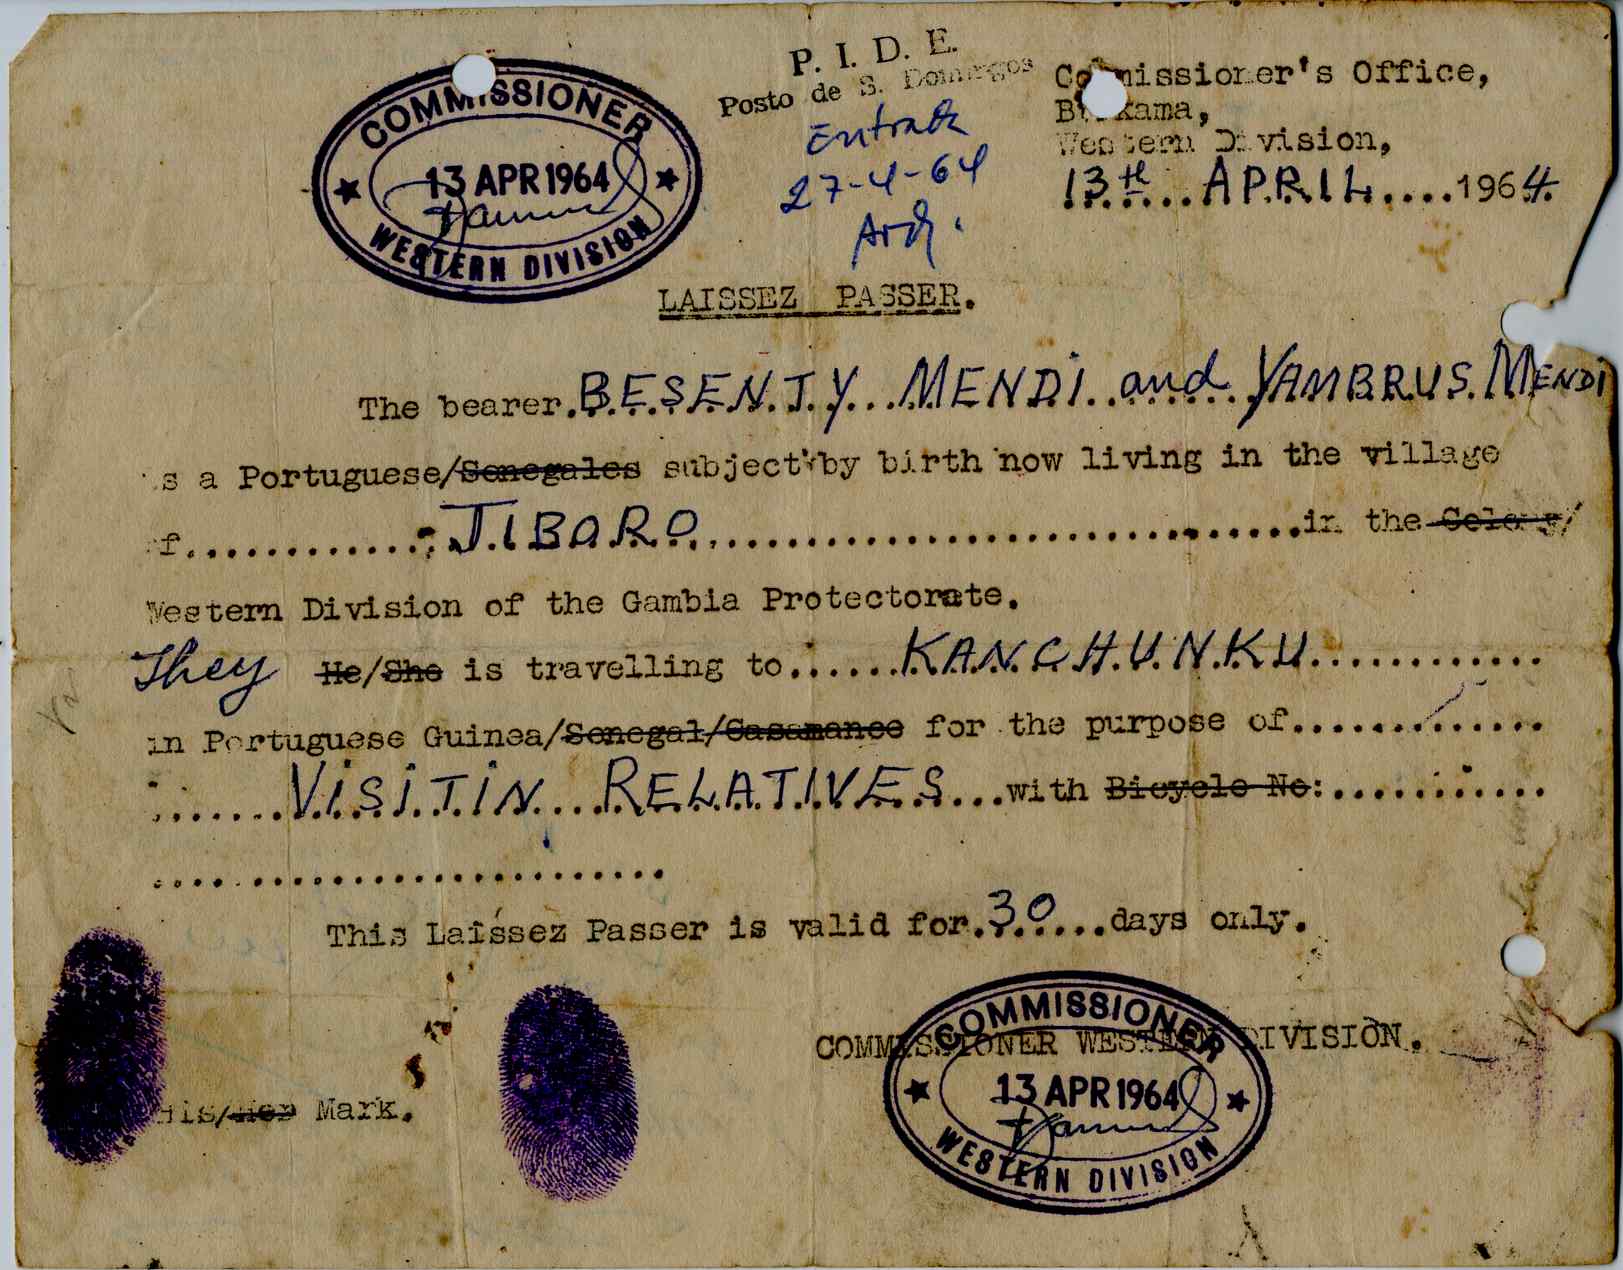 COMMISSIONER
13 APR 1964
WESTERN DIVISION
P. I. D. E.
Posto de S. Domingos
Entrada
27-4-64
Commissioner's Office,
Brikama,
Western Division,
13th APRIL 1964.
LAISSEZ PASSER.
The bearer BESENTY MENDI and YAMBRUS MENDI
is a Portuguese/Senegales subject by birth now living in the village
of JIBORO in the Colony/
Western Division of the Gambia Protectorate.
They He/She is travelling to KANCHUNKU
in Portuguese Guinea/Senegal/Casamance for the purpose of
VISITIN RELATIVES with Bicycle No:
This Laissez Passer is valid for 30 days only.
COMMISSIONER WESTERN DIVISION.
COMMISSIONER
13 APR 1964
WESTERN DIVISION
His/Her Mark.